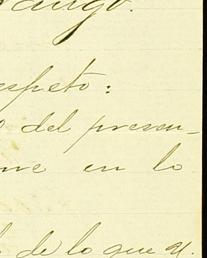 rango.
speto:
o del presen-
me en lo
l de lo que U.